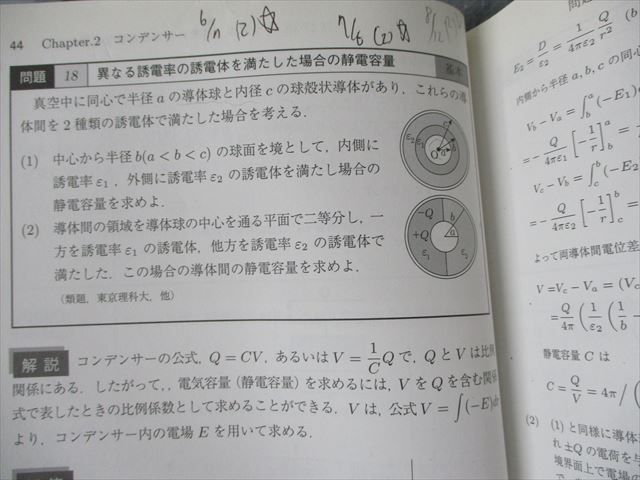 6/11 (2) ☆
7/6 (2) ☆
8/12
44 Chapter.2 コンデンサー
問題 18 異なる誘電率の誘電体を満たした場合の静電容量 基本
真空中に同心で半径 a の導体球と内径 c の球殻状導体があり，これらの導
体間を2種類の誘電体で満たした場合を考える．
(1) 中心から半径 b(a < b < c) の球面を境として，内側に
誘電率 ε₁，外側に誘電率 ε₂ の誘電体を満たし場合の
静電容量を求めよ．
(2) 導体間の領域を導体球の中心を通る平面で二等分し，一
方を誘電率 ε₁ の誘電体，他方を誘電率 ε₂ の誘電体で
満たした．この場合の導体間の静電容量を求めよ．
（類題，東京理科大，他）
O a c
−Q b
+Q a
ε₁ ε₂
解説 コンデンサーの公式，Q = CV，あるいは V = 1/C Q で，Q と V は比例
関係にある．したがって,，電気容量（静電容量）を求めるには，V を Q を含む関係
式で表したときの比例係数として求めることができる．V は，公式 V = ∫(−E)dr
より，コンデンサー内の電場 E を用いて求める．
問題
E₂ = D/ε₂ = 1/4πε₂ Q/r² (b
内側から半径 a, b, c の同心
V_b − V_a = ∫_a^b (−E₁)
= − Q/4πε₁ [−1/r]_a^b =
V_c − V_b = ∫_c^b (−E₂
= − Q/4πε₂ [−1/r]_c^b =
よって両導体間電位差
V = V_c − V_a = (V_c
= Q/4π (1/ε₂ (1/b
静電容量 C は
C = Q/V = 4π / (
(2) (1) と同様に導体
れ ±Q の電荷を与
境界面上で電場の